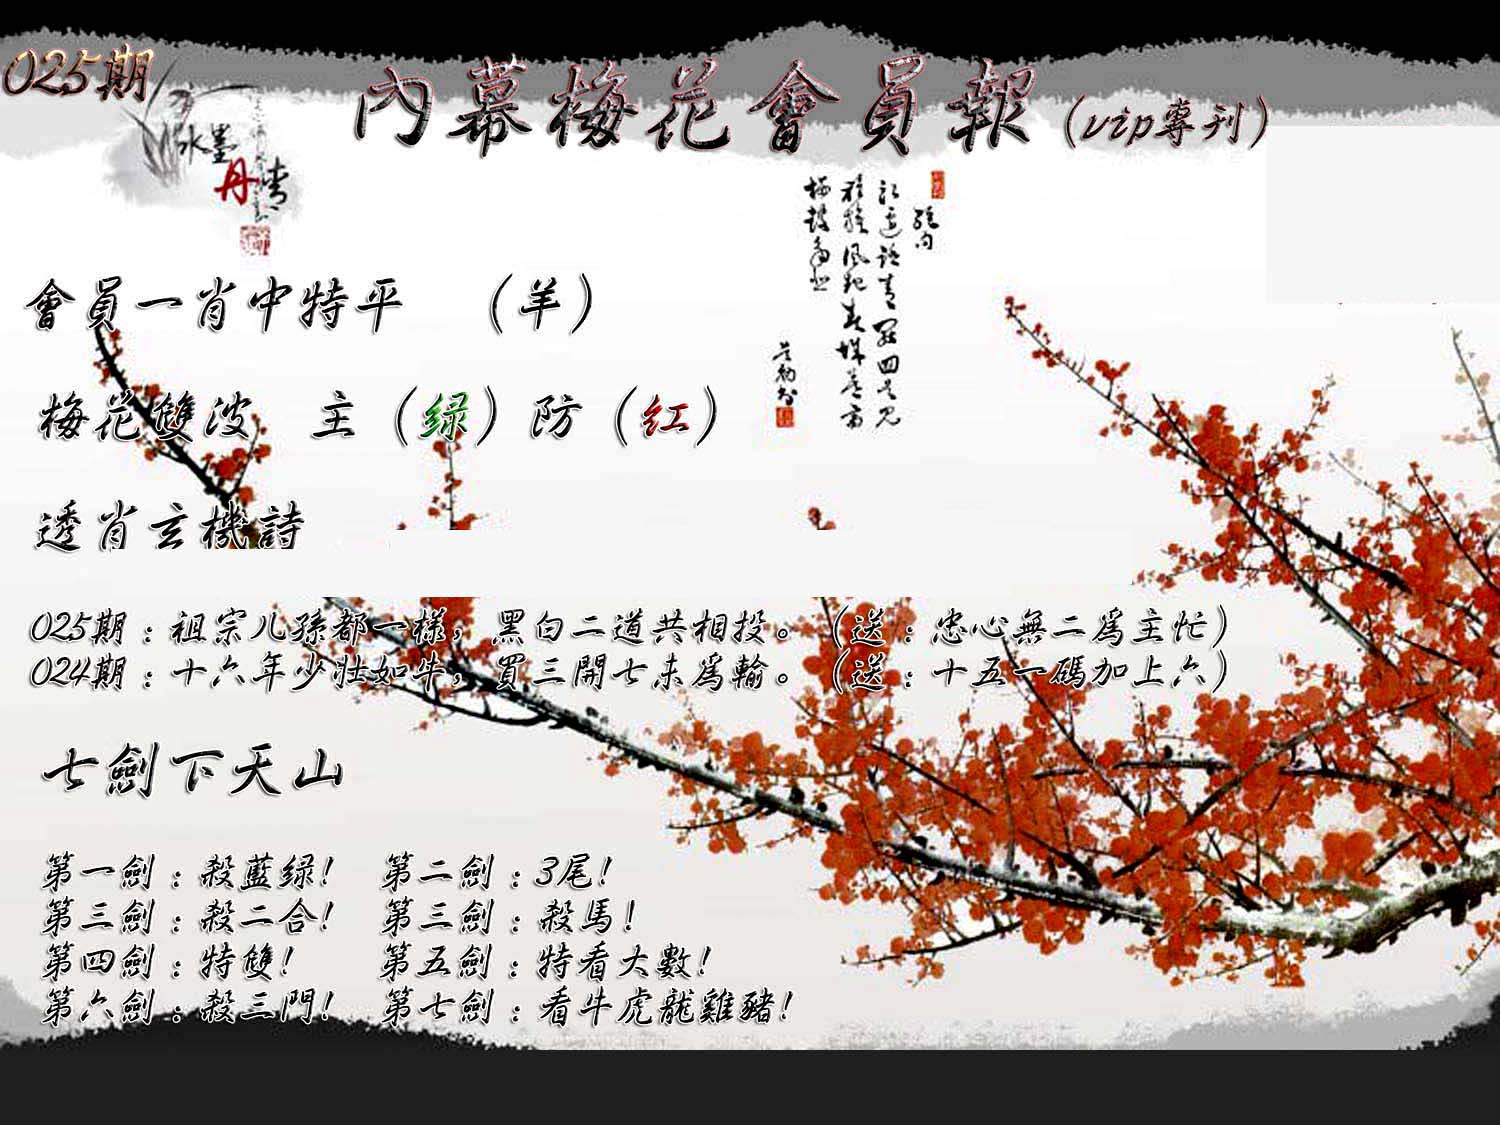 025期
內幕梅花會員報（vip專刊）
水墨
丹青
會員一肖中特平　（羊）
梅花雙波　主（绿）防（红）
透肖玄機詩
025期：祖宗儿孫都一様，黑白二道共相投。（送：忠心無二爲主忙）
024期：十六年少壯如牛，買三開七未爲輸。（送：十五一碼加上六）
七劍下天山
第一劍：殺藍绿！　第二劍：3尾！
第三劍：殺二合！　第三劍：殺馬！
第四劍：特雙！　第五劍：特看大數！
第六劍：殺三門！　第七劍：看牛虎龍雞豬！